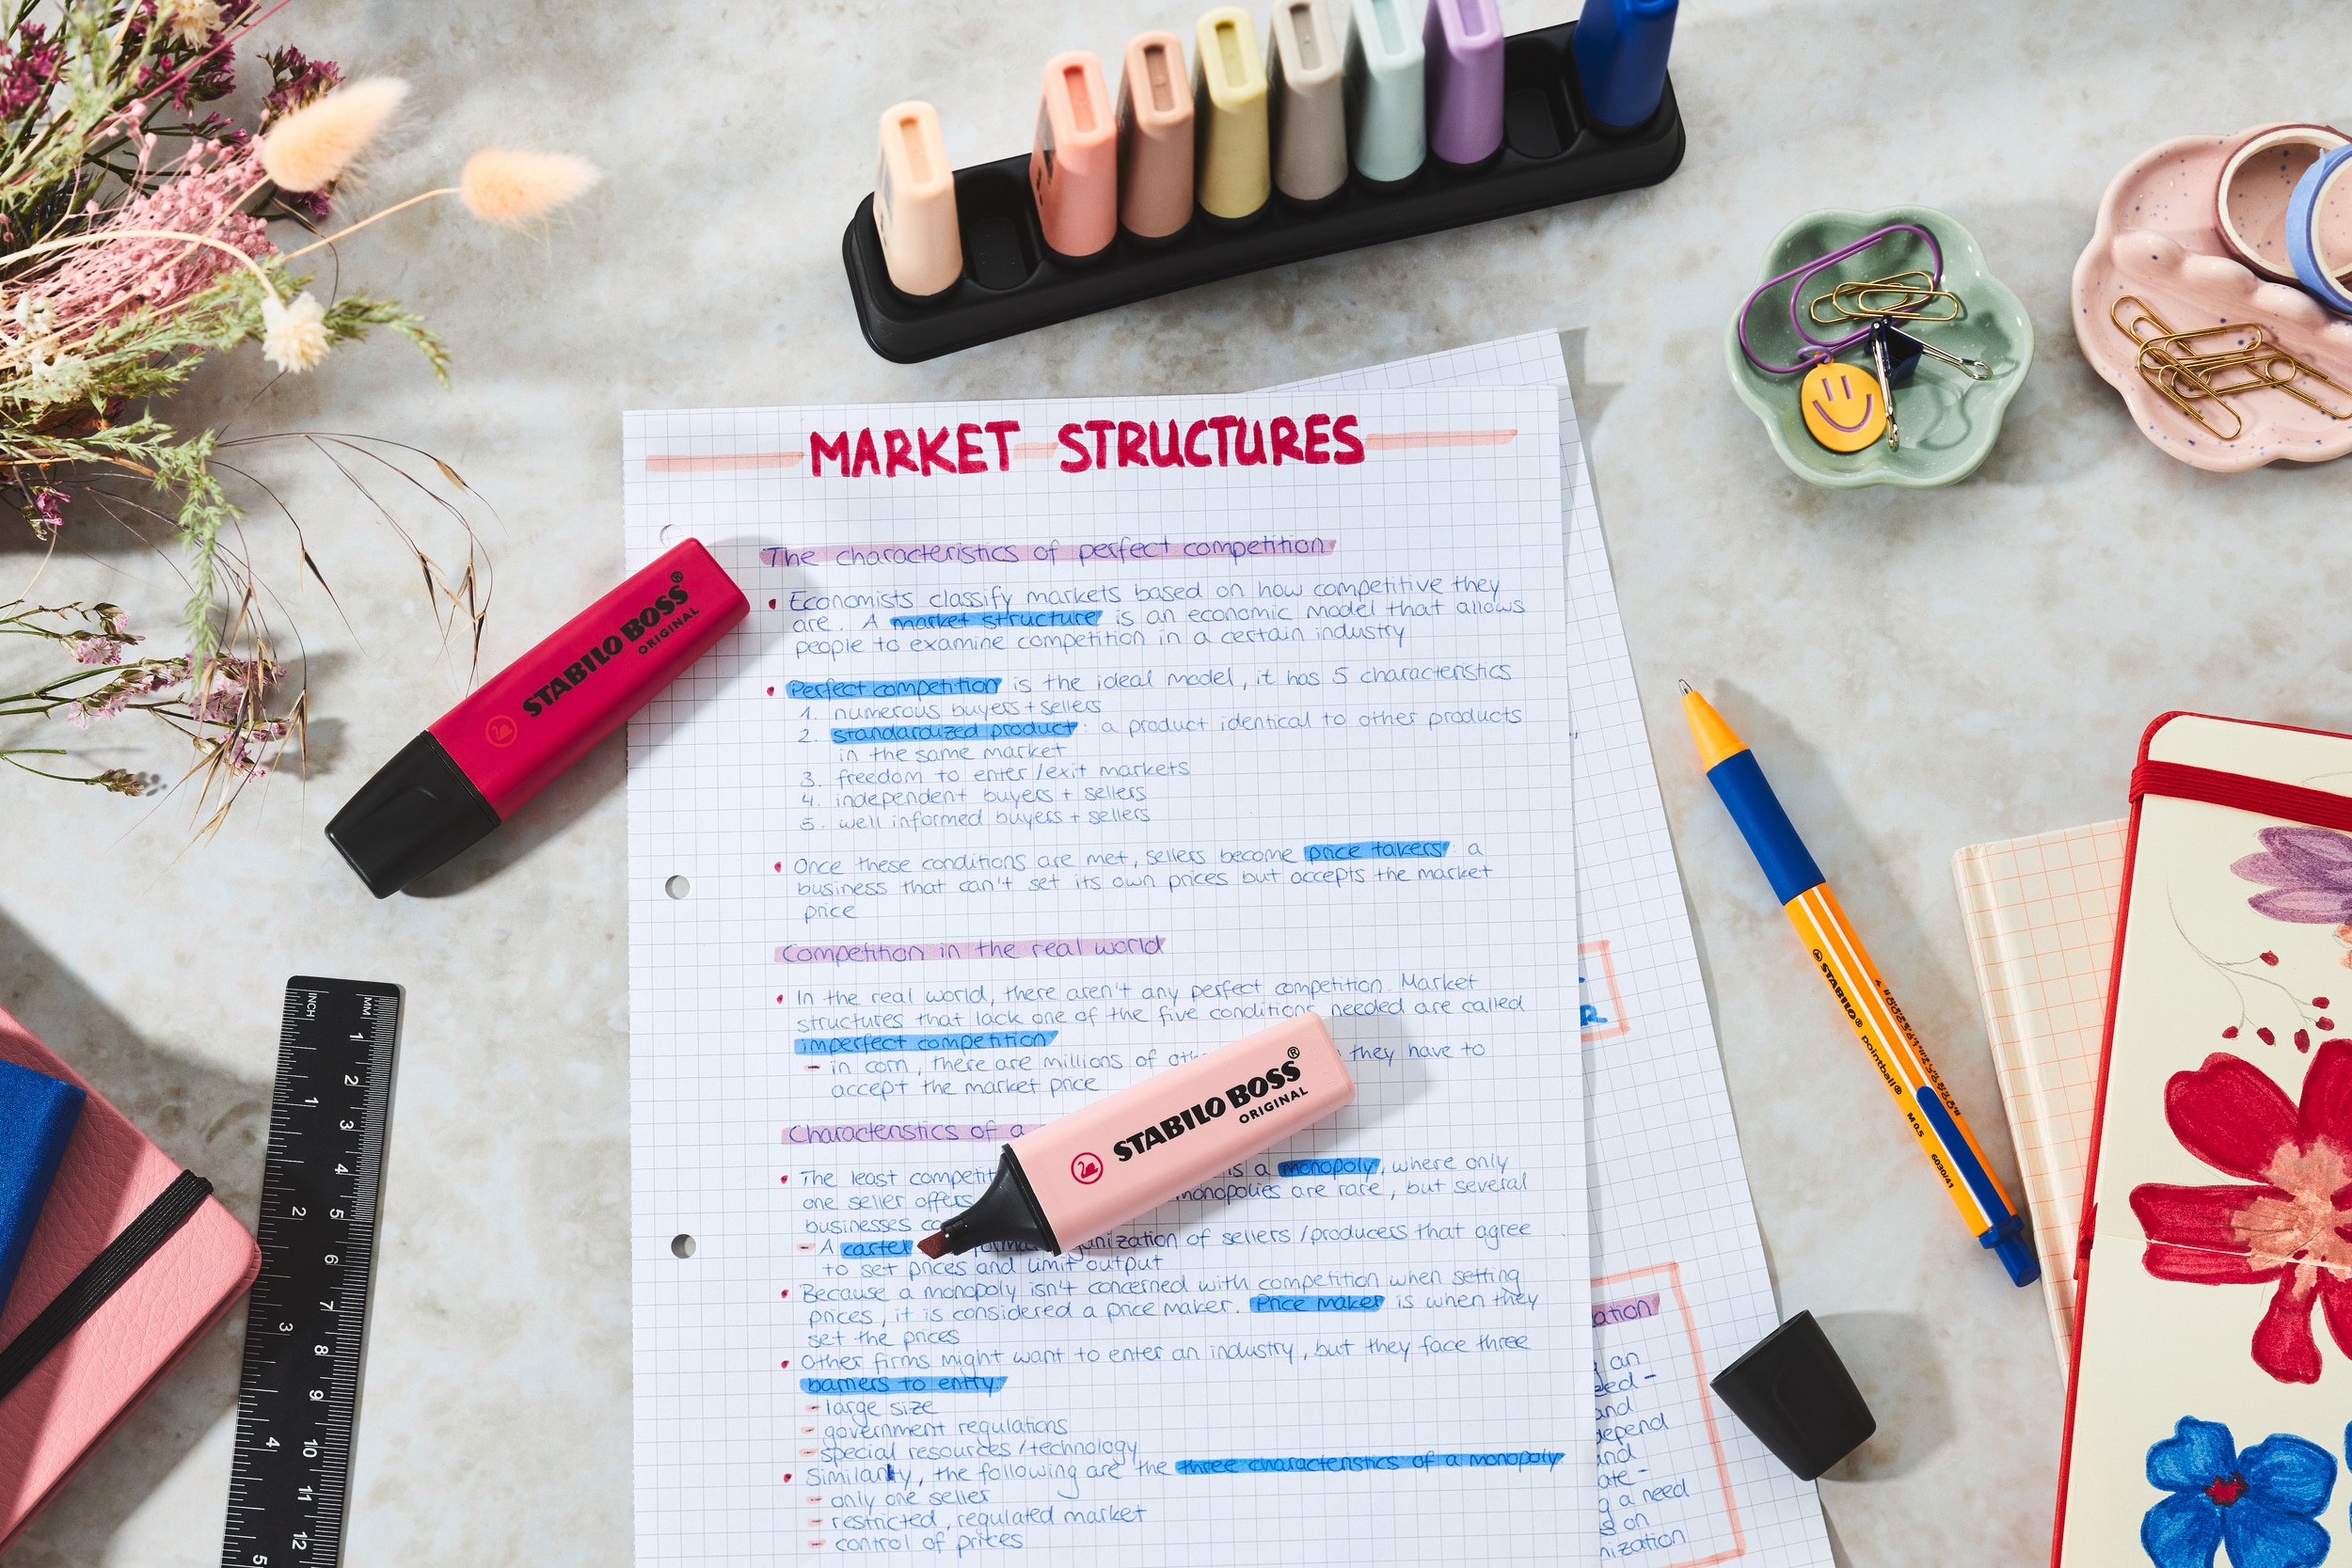 MARKET STRUCTURES
The characteristics of perfect competition
• Economists classify markets based on how competitive they
are. A market structure is an economic model that allows
people to examine competition in a certain industry
• Perfect competition is the ideal model, it has 5 characteristics
1. numerous buyers + sellers
2. standardized product: a product identical to other products
in the same market
3. freedom to enter/exit markets
4. independent buyers + sellers
5. well informed buyers + sellers
• Once these conditions are met, sellers become price takers: a
business that can't set its own prices but accepts the market
price
Competition in the real world
• In the real world, there aren't any perfect competition. Market
structures that lack one of the five conditions needed are called
imperfect competition
- in corn, there are millions of they have to
accept the market price
Characteristics of a
• The least is a monopoly, where only
one seller offers monopolies are rare, but several
businesses
- A cartel of sellers/producers that agree
to set prices and limit output
• Because a monopoly isn't concerned with competition when setting
prices, it is considered a price maker. Price maker is when they
set the prices
• Other firms might want to enter an industry, but they face three
barriers to entry:
- large size
- government regulations
- special resources/technology
• Similarly, the following are the three characteristics of a monopoly
- only one seller
- restricted, regulated market
- control of prices
STABILO BOSS®
ORIGINAL
STABILO BOSS®
ORIGINAL
STABILO® pointball® M 0.5 6030/41
INCH MM
1 2 3 4 5 6 7 8 9 10 11 12
1 2 3 4 5
R
ation
an
and
depend
and
ate-
g a need
s on
nization